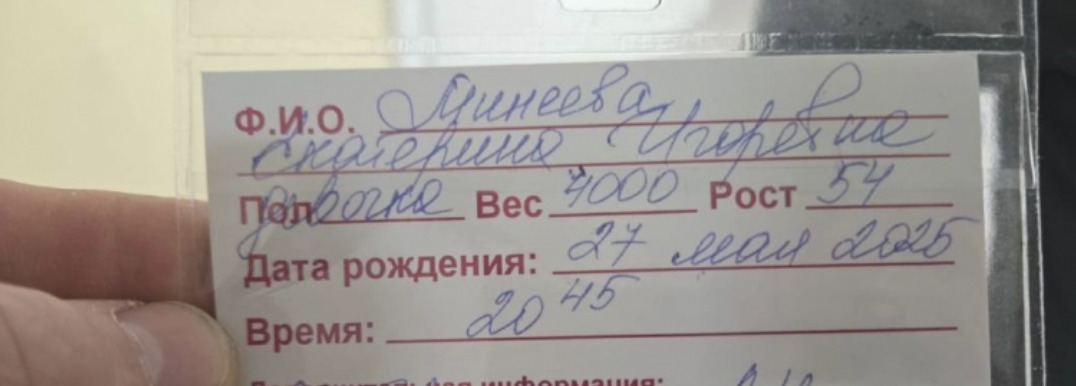 Ф.И.О. Минеева
Екатерина Игоревна
Пол девочка Вес 4000 Рост 54
Дата рождения: 27 мая 2025
Время: 20 45
информация: